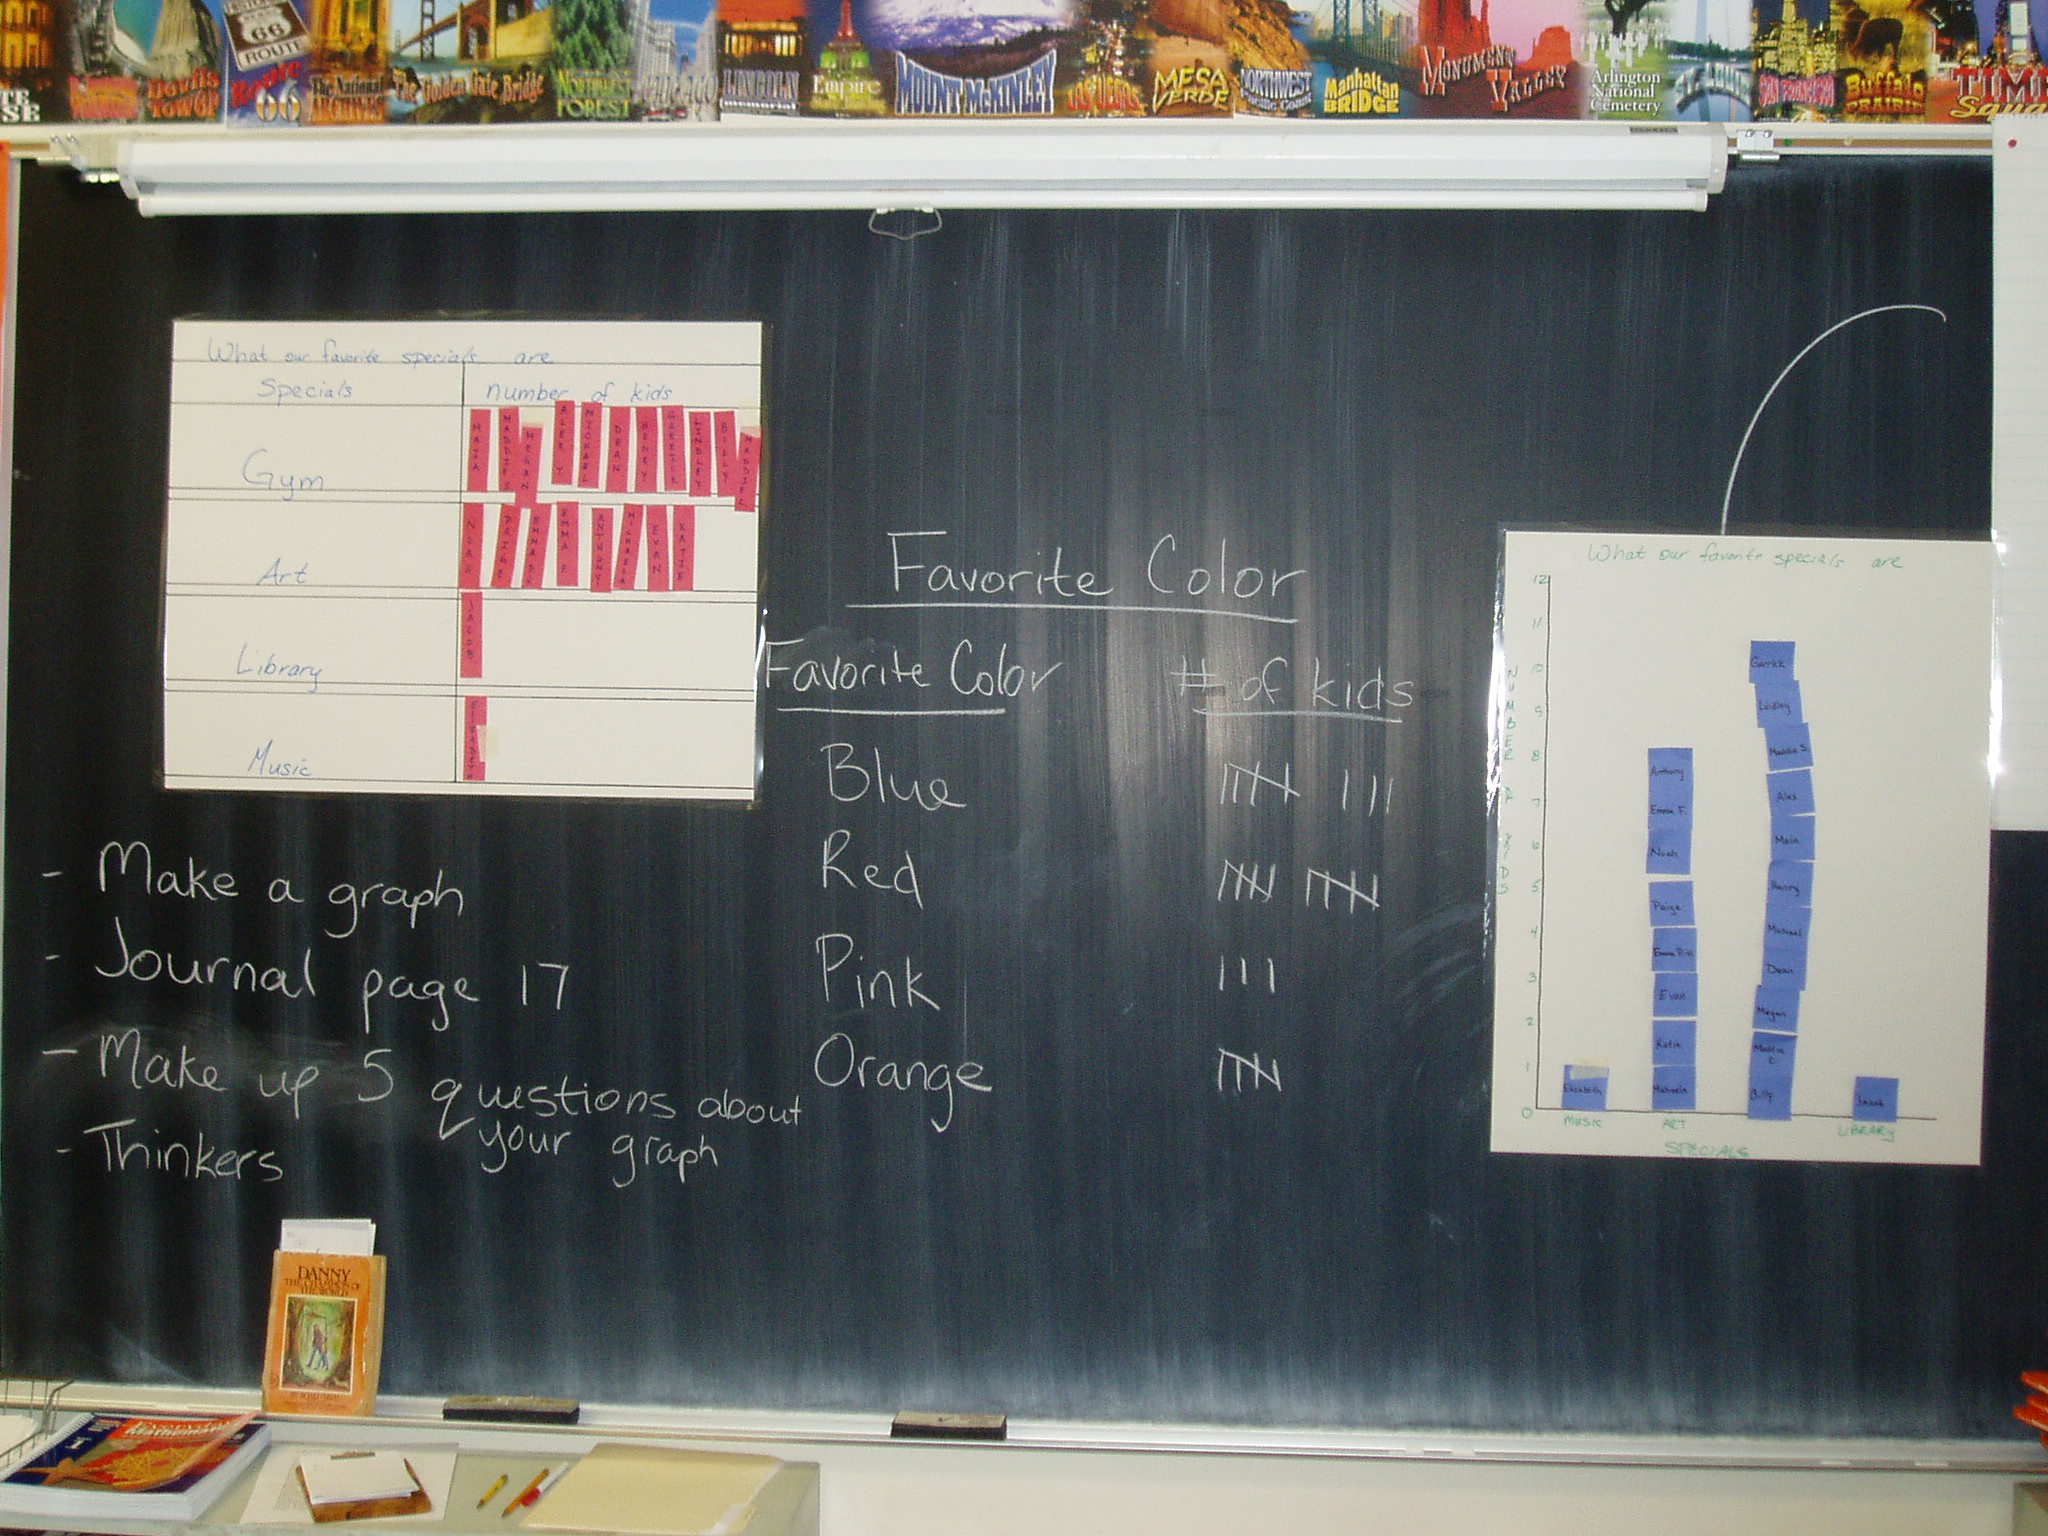 Devils Tower
ROUTE 66
Route 66
The National ARCHIVES
The Golden Gate Bridge
NORTHWEST FOREST
CHICAGO
LINCOLN memorial
Empire
MOUNT McKINLEY
LAS VEGAS
MESA VERDE
NORTHWEST Pacific Coast
Manhattan BRIDGE
MONUMENT VALLEY
Arlington National Cemetery
ST. LOUIS
SAN FRANCISCO
Buffalo PRAIRIE
What our favorite specials are
Specials number of kids
Gym
MAIA
MADDIE S
MEGAN
MICHAEL
DEAN
HENRY
GARRICK
LINDLEY
BILLY
MADDIE C
Art
NOAH
PAIGE
EMMA
EMMA F
ANTHONY
MICHAELA
EVAN
KATIE
Library
JACOB
Music
ELIZABETH
- Make a graph
- Journal page 17
- Make up 5 questions about
your graph
- Thinkers
Favorite Color
Favorite Color # of kids
Blue
Red
Pink
Orange
What our favorite specials are
NUMBER OF KIDS
12
11
10
9
8
7
6
5
4
3
2
1
0
Elizabeth
Anthony
Emma F
Noah
Paige
Emma
Evan
Katie
Michaela
Garrick
Lindley
Maddie S
Alex
Maia
Henry
Michael
Dean
Megan
Maddie C
Billy
Jacob
MUSIC ART LIBRARY
SPECIALS
DANNY
THE CHAMPION OF
THE WORLD
Everyday
Mathematics